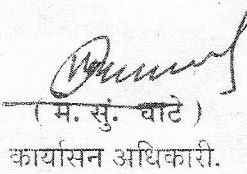 ( म. सुं. वाटे )
कार्यासन अधिकारी.